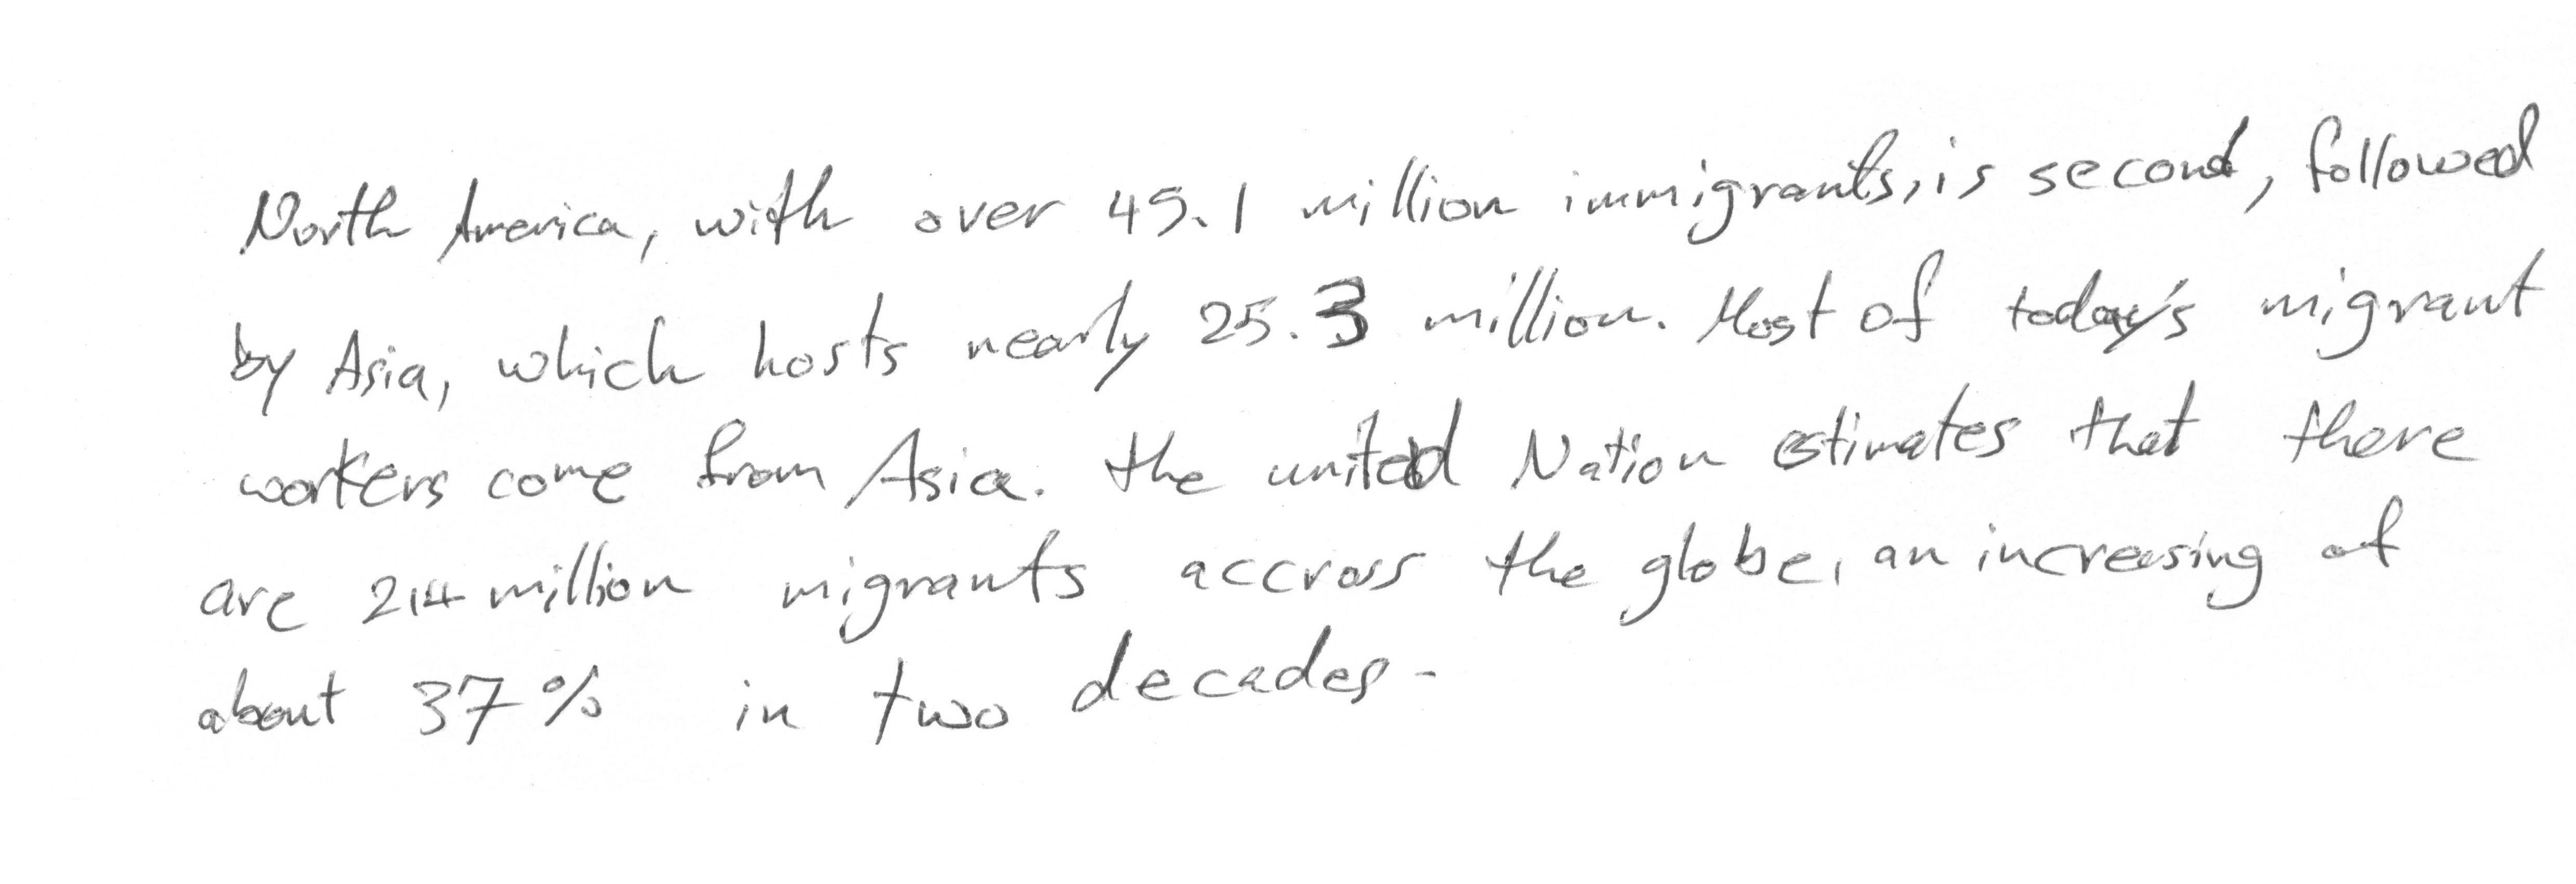 North America, with over 45.1 million immigrants, is second, followed
by Asia, which hosts nearly 25.3 million. Most of today's migrant
workers come from Asia. the united Nation estimates that there
are 214 million migrants accross the globe, an increasing of
about 37% in two decades.